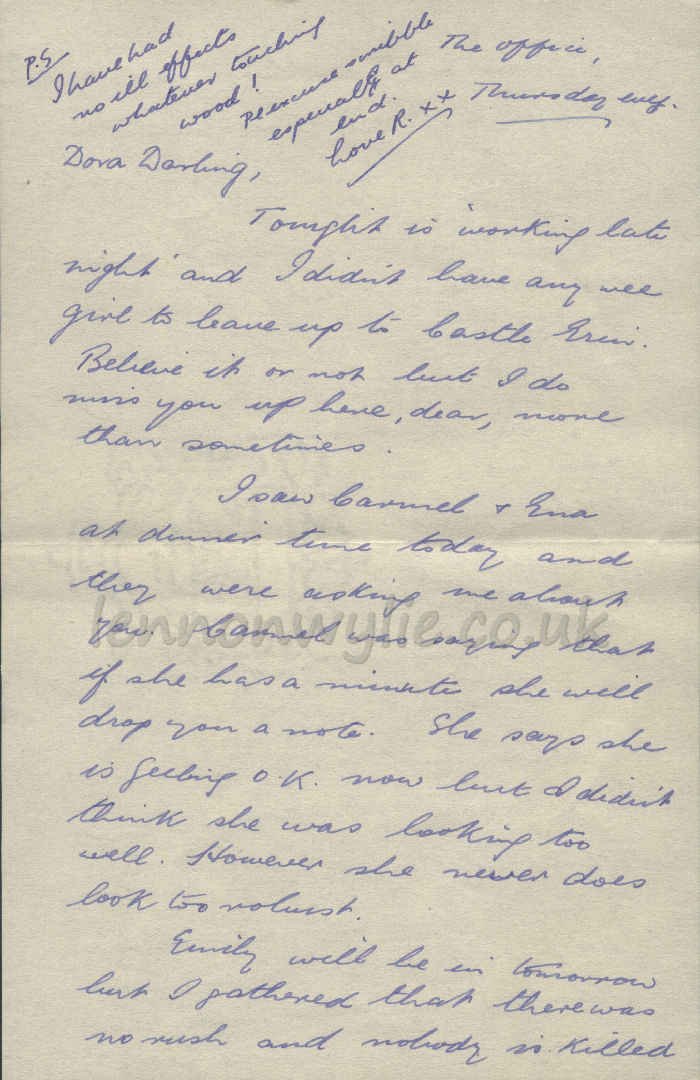 P.S
I have had
no ill effects
whatever touching
wood!
Pl excuse scribble
especially at
end.
Love R. xx
The office,
Thursday evg.
Dora Darling,
Tonight is 'working late
night' and I didn't have any wee
girl to leave up to Castle Erin.
Believe it or not but I do
miss you up here, dear, more
than sometimes.
I saw Carmel & Ena
at dinner time today and
they were asking me about
you. Carmel was saying that
if she has a minute she will
drop you a note. She says she
is feeling O.K. now but I didn't
think she was looking too
well. However she never does
look too robust.
Emily will be in tomorrow
but I gathered that there was
no rush and nobody is killed
lennonwylie.co.uk